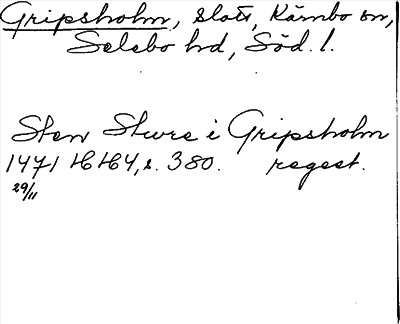 Gripsholm, slott, Kärnbo sn,
Selebo hd, Söd. l.
Sten Sture i Gripsholm
1471 HH4, s. 380. regest.
29/11